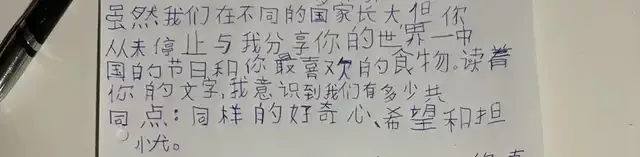 虽然我们在不同的国家长大,但你
从未停止与我分享你的世界一中
国的节日和你最喜欢的食物。读着
你的文字,我意识到我们有多少共
同点:同样的好奇心、希望和担
忧。